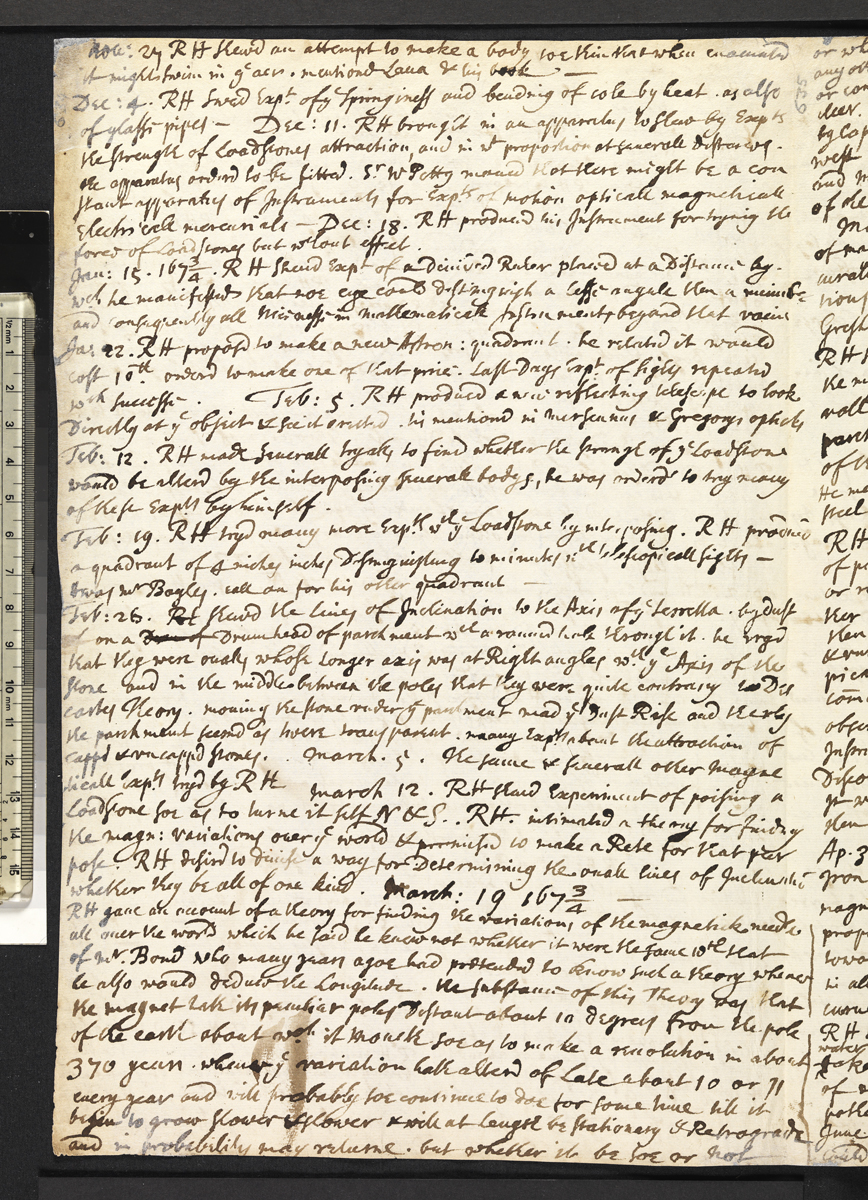 Nov: 27 RH shewd an attempt to make a body soe thin that when evacuated
it might swim in ye aer. mentiond Lana & his book —
Dec: 4. RH Shewd Expt. of ye springiness and bending of cole by heat. as also
of glasse pipes — Dec: 11. RH brought in an apparatus to shew by Expts
the strength of Loadstones attraction, and in wt proportion at severall Distances.
the apparatus orderd to be fitted. Sr W Petty moved that there might be a con
stant apparatus of Instruments for Expts of motion opticall magneticall
Electricall mercurials — Dec: 18. RH produced his Instrument for trying the
force of Loadstones but wthout effect.
Jan: 15. 167¾. RH shewd Expt of a Divided Ruler placed at a Distance by.
wch he manifested that noe eye could distinguish a lesse angle then a minute
and consequently all niceness in mathematicall Instruments beyond that vaine
Ja: 22. RH proposd to make a new Astron: quadrant. he related it would
cost 10th orderd to make one of that price. Last Days Expt. of sights repeated
wth successe. Feb: 5. RH produced a new reflecting telescope to look
Directly at ye object & see it erected. tis mentiond in mersennus & Gregorys opticks
Feb: 12. RH made severall tryalls to find whether the strength of ye Loadstone
would be alterd by the interposing severall bodys, he was orderd to try many
of these Expts by himself.
Feb: 19. RH tryd many more Expts wth ye Loadstone by interposing. RH produced
a quadrant of inches Distinguishing to minutes wth telescopicall sights —
twas mr Bayles. call on for his other quadrant —
Feb: 26. RH shewd the lines of Inclination to the Axis of ye terrella. by dust
on a Drumhead of parchment wth a round hole through it. he
that they were ovalls whose longer axis was at Right angles wth ye Axis of the
stone and in the middle between the poles that they were quite contrary to Des
cartes theory. moving the stone under ye parchment made ye Dust Rise and thereby
the parchment seemd as twere transparent. many Expts about the attraction of
cappd & uncappd stones. March. 5. the same & severall other magne
ticall Expts tryd by RH March 12. RH shewd Experiment of poising a
Loadstone soe as to turne it self N & S. RH. intimated a theory for finding
the magn: variations over ye world & promised to make a Rete for that pur
pose. RH desird to devise a way for Determining the ovall lines of Inclination
whether they be all of one kind. March: 19 167¾ —
RH gave an account of a theory for finding the variations of the magnetick needle
all over the world which he said he knew not whether it were the same wth that
of mr. Bond who many years agoe had pretended to know such a theory whence
he also would deduce the Longitude. the substance of this Theory was that
the magnet hath its peculiar poles Distant about 10 degrees from the pole
of the earth about wch it moveth soe as to make a revolution in about
370 years. whence ye variation hath alterd of late about 10 or 11
every year and will probably soe continue to doe for some time till it
begin to grow slower & slower & will at length be stationary & Retrograde
and in probability may returne. but whether it be soe or not